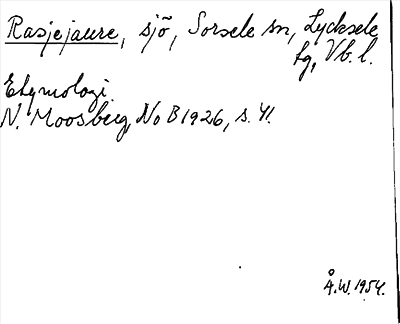 Rasjejaure, sjö, Sorsele sn, Lycksele
tg, Vb. l.
Etymologi.
N. Moosberg, NoB 1926, s. 41.
Å.W. 1954.